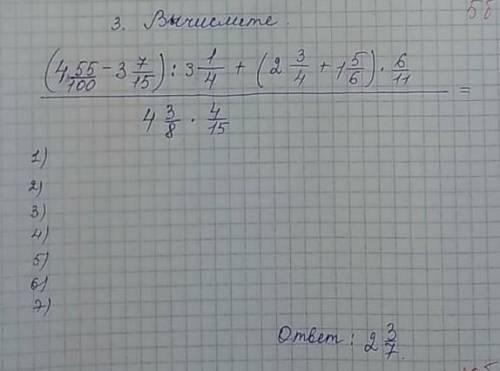 3. Вычислите.
(4 55/100 - 3 7/15) : 3 1/4 + (2 3/4 + 1 5/6) · 6/11
4 3/8 · 4/15 =
1)
2)
3)
4)
5)
6)
7)
Ответ : 2 3/7.